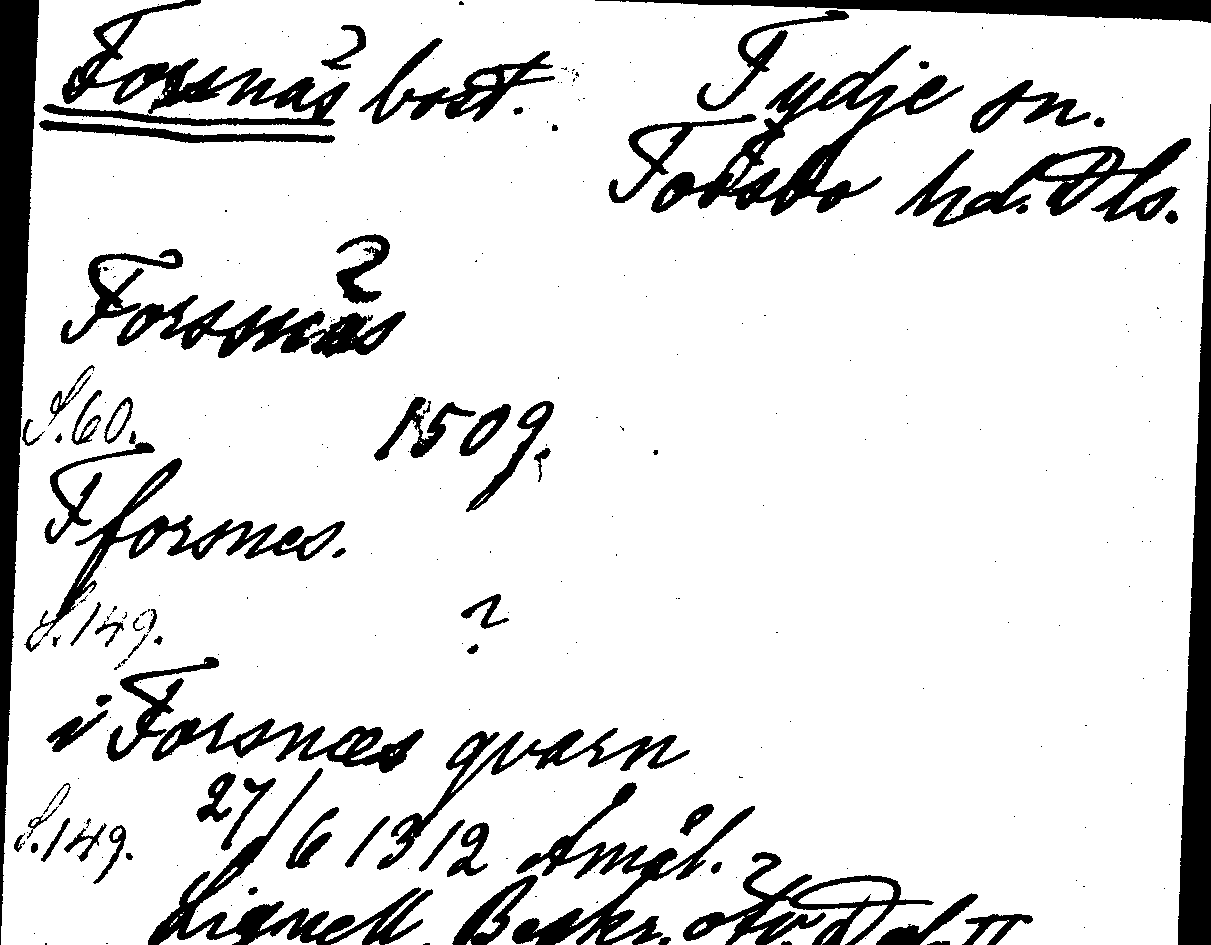 Forsnäs bost. Tydje sn.
Tössbo hd. Dls.
Forssnäs
S.60. 1509.
Fforsnes.
S.149. ?
i Forsnæs qvarn
S.149. 27/6 1312 Åmål.
Lignell Beskr. Dal. II